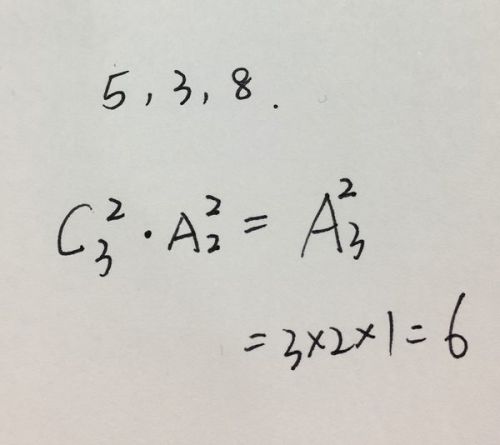 5, 3, 8.
C₃² · A₂² = A₃²
= 3×2×1 = 6